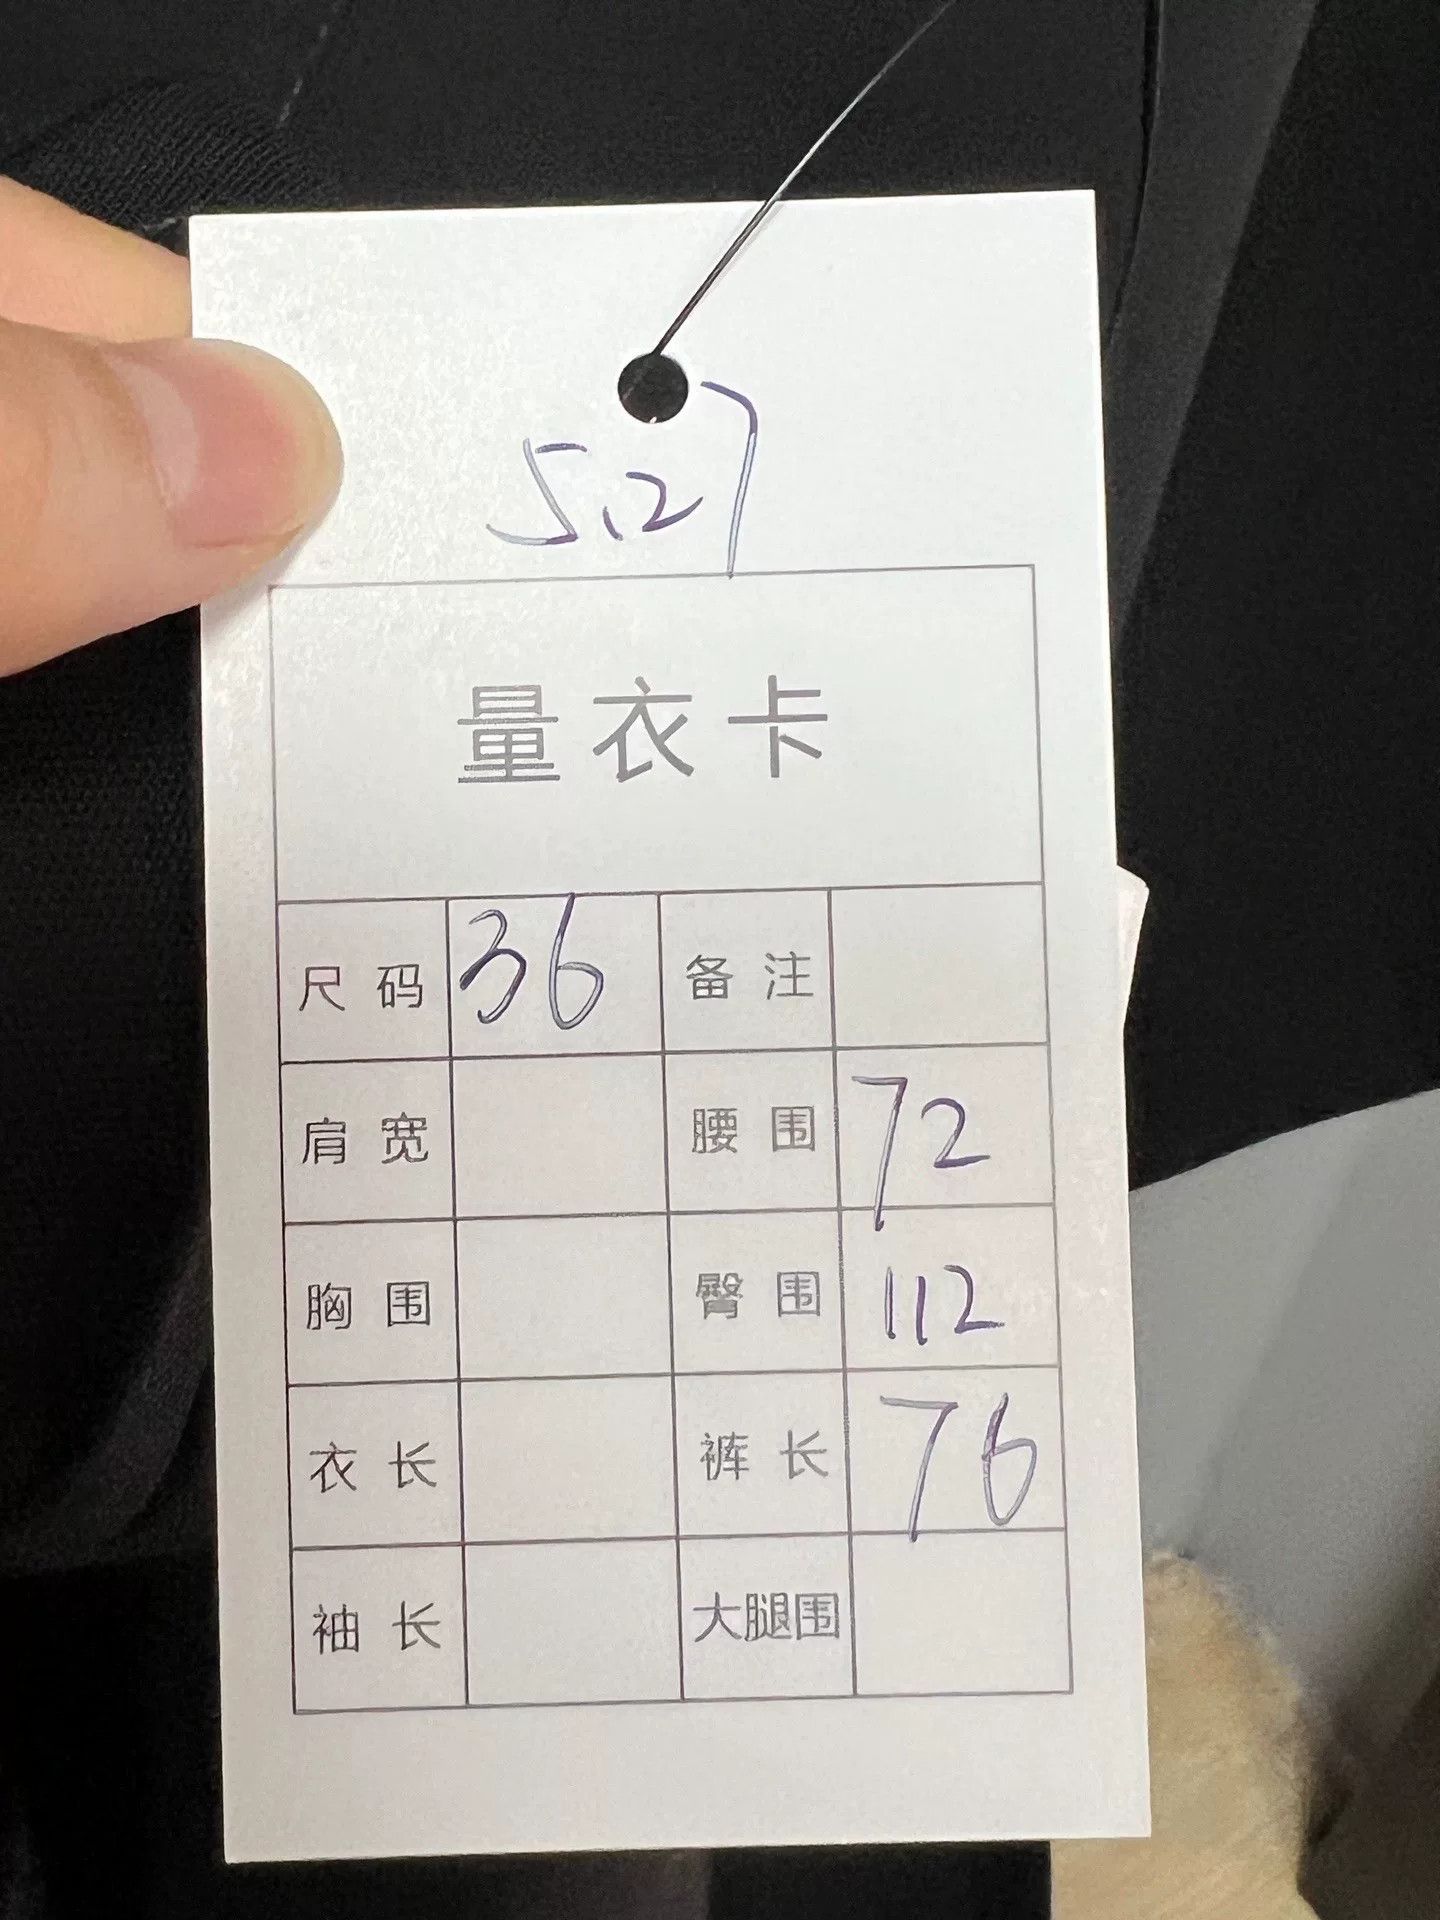 5.27
量衣卡
尺码 36 备注
肩宽 腰围 72
胸围 臀围 112
衣长 裤长 76
袖长 大腿围